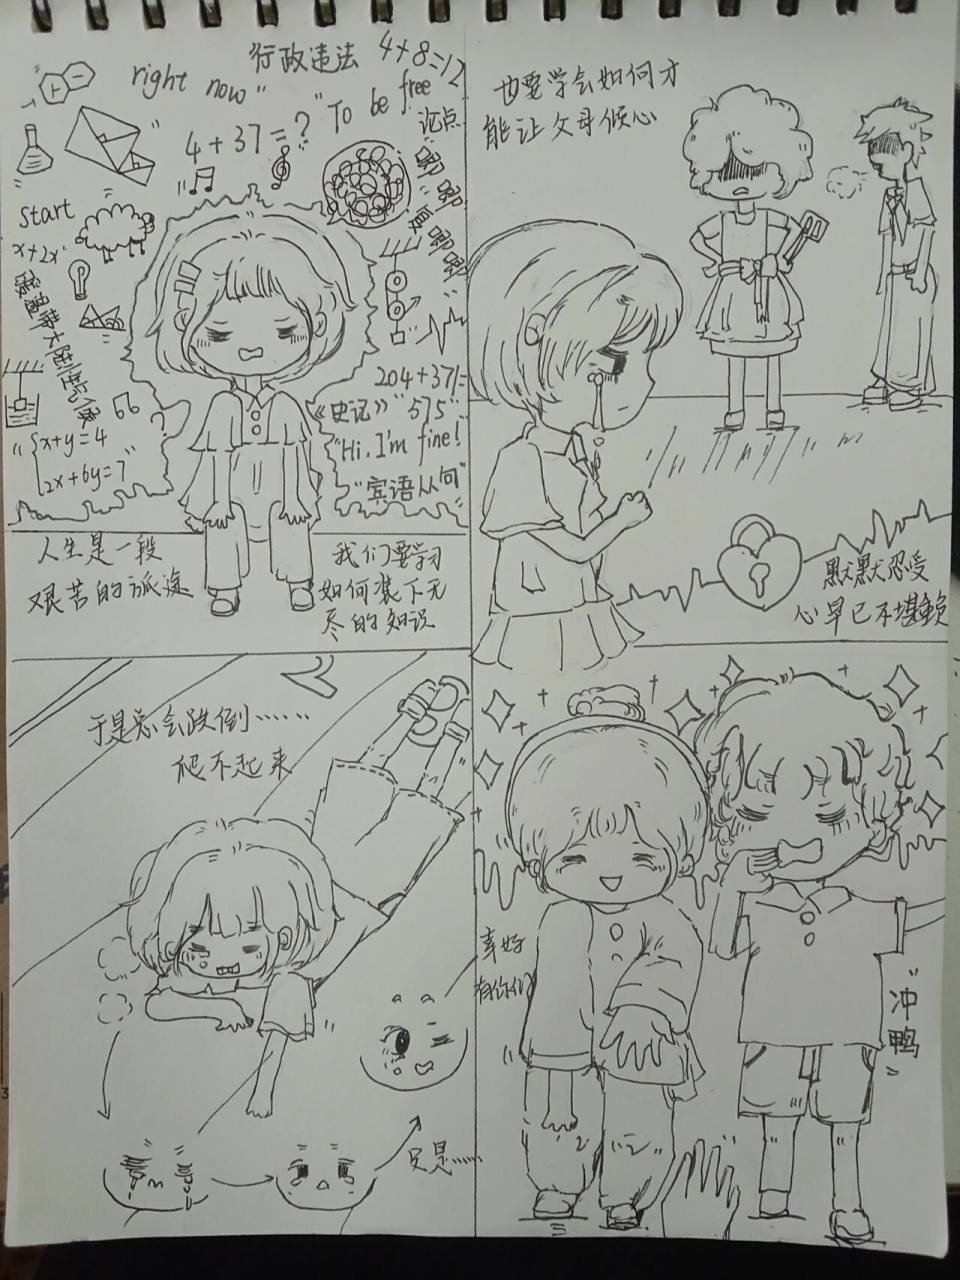 行政违法
4+8=12
right now"
"To be free
论点
4+37=?
start
x+2x
204+37/=
《史记》"575"
"Hi, I'm fine!
"宾语从句"
x+y=4
2x+6y=7"
人生是一段
艰苦的旅途
我们要学习
如何装下无
尽的知识
也要学会如何才
能让父母倾心
默默忍受
心早已不堪重负
于是总会跌倒……
爬不起来
只是……
幸好
有你们
"冲
鸭"